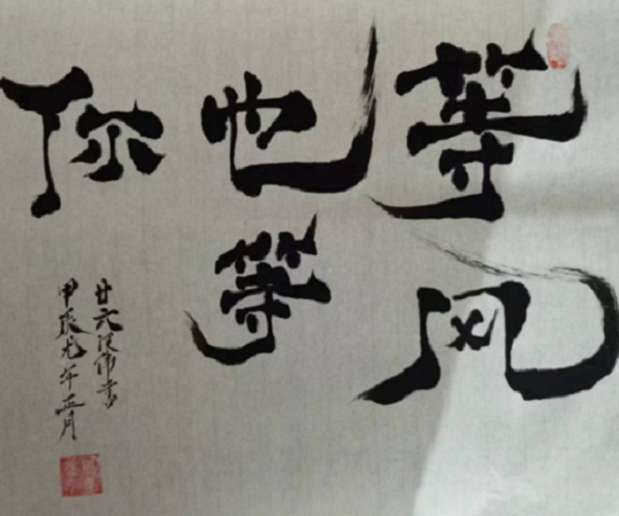 等风
也等
你
廿六伟书
甲辰龙年正月